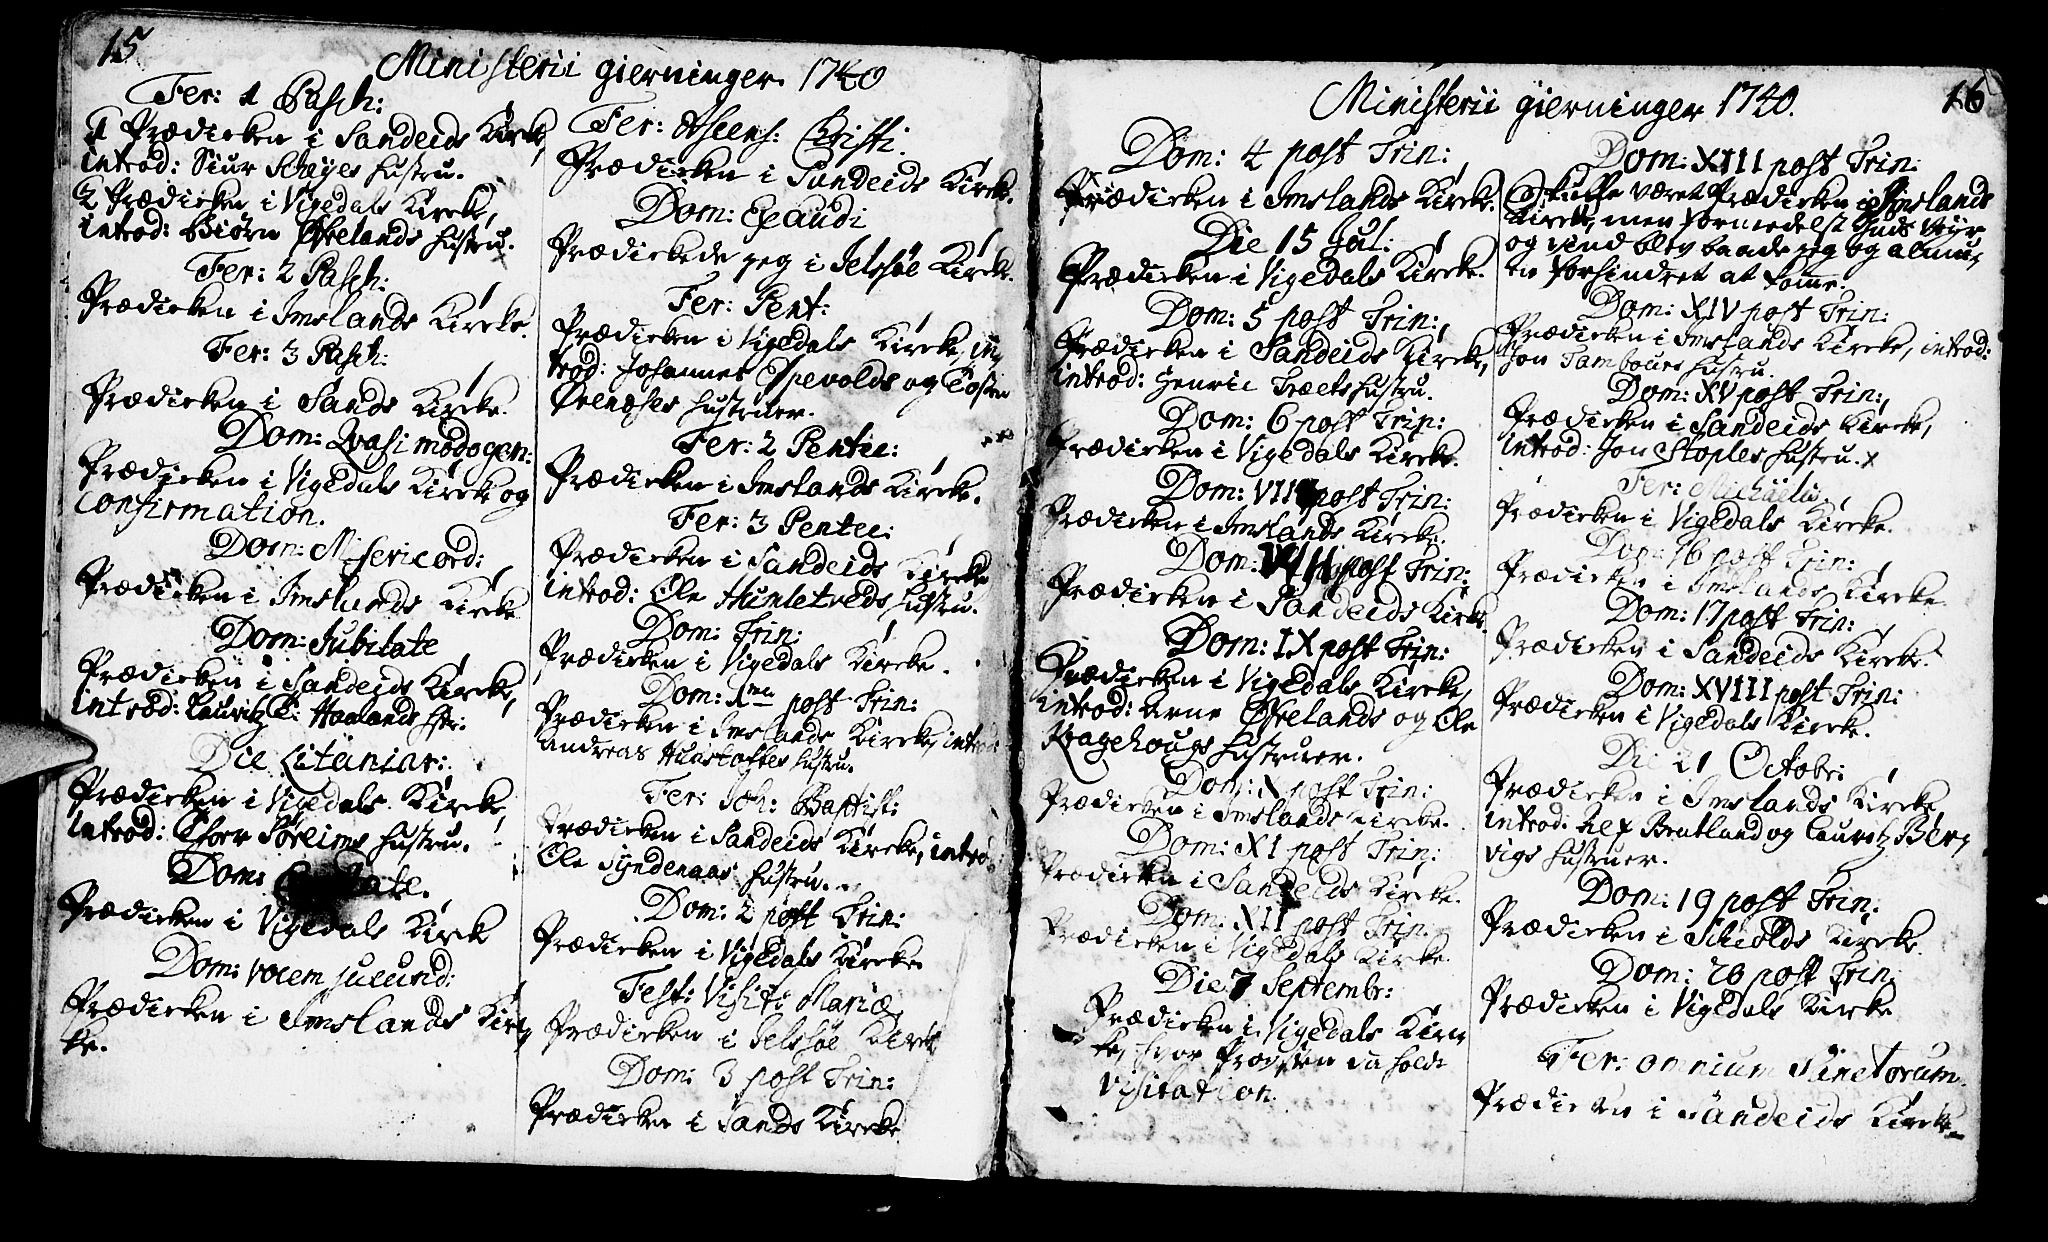 15
Ministerii gierninger 1740
Fer: 1 Pasch:
1 Prædicken i Sandeids Kirke,
introd: Siur Scheyes Hustru.
2 Prædicken i Vigedals Kircke,
introd: Biørn Øfrelands Hustru.
Fer: 2 Pasch:
Prædicken i Imslands Kircke.
Fer: 3 Pasch:
Prædicken i Sands Kircke.
Dom: Qvasimodogen:
Prædicken i Vigedals Kircke og
Confirmation.
Dom: Misericord:
Prædicken i Imslands Kircke
Dom: Jubilate
Prædicken i Sandeids Kircke,
introd: Lauritz Haalands Hstr:
Die Litaniar:
Prædicken i Vigedals Kircke,
introd: Thore Søreims Hustru.
Dom:
Prædicken i Vigedals Kirck
Dom: vocem jucund:
Prædicken i Imslands Kirc
ke.
Fer: Ascens: Christi.
Prædicken i Sandeids Kircke.
Dom: Exaudi
Prædickede jeg i Jelssøe Kircke.
Fer: Pent:
Prædicken i Vigedals Kircke, in
trod: Johannes Espevolds og Tosten
Øvenoses Hustruer.
Fer: 2 Pentec:
Prædicken i Imslands Kircke.
Fer: 3 Pentec:
Prædicken i Sandeids Kircke
introd: Ole Hunletveds Hustru.
Dom: Trin:
Prædicken i Vigedals Kircke.
Dom: 1ma post Trin:
Prædicken i Imslands Kircke, introd:
Andreas Huastoftes Hustru.
Fer: Joh: Baptist:
Prædicken i Sandeids Kircke, introd:
Ole Syndenaas Hustru.
Dom: 2 post Trin:
Prædicken i Vigedals Kircke
Fest: Visit: Mariæ
Prædicken i Jelssøe Kirck
Dom: 3 post Trin:
Prædicken i Sands Kircke
16
Ministerii gierninger 1740.
Dom: 4 post Trin:
Prædicken i Imslands Kircke.
Die 15 Jul:
Prædicken i Vigedals Kircke.
Dom: 5 post Trin:
Prædicken i Sandeids Kircke,
introd: Henric Træets Hustru.
Dom: 6 post Trin:
Prædicken i Vigedals Kircke.
Dom: VII post Trin:
Prædicken i Imslands Kircke.
Dom: VIII post Trin:
Prædicken i Sandeids Kircke.
Dom: IX post Trin:
Prædicken i Vigedals Kircke,
introd: Arne Øfrelands og Ole
Kragehougs Hustruer.
Dom: X post Trin:
Prædicken i Imslands Kircke.
Dom: XI post Trin:
Prædicken i Sandeids Kircke.
Dom: XII post Trin:
Prædicken i Vigedals Kircke.
Die 7 Septembr:
Prædicken i Vigedals Kirc
ke, hvor Provsten da holdt
Visitation.
Dom: XIII post Trin:
Skulle været Prædicken i Imslands
Kircke, men formedelst Guds Veyr
og vind blev baade jeg og almu,
en forhindret at komme.
Dom: XIV post Trin:
Prædicken i Imslands Kircke, introd:
Jon Tambours Hustru.
Dom: XV post Trin:
Prædicken i Sandeids Kircke,
introd: Jon Stoples Hustru.
Fer: Michaelis
Prædicken i Vigedals Kircke.
Dom: 16 post Trin:
Prædicken i Imslands Kircke
Dom: 17 post Trin:
Prædicken i Sandeids Kircke.
Dom: XVIII post Trin:
Prædicken i Vigedals Kircke.
Die 21 Octobr:
Prædicken i Imslands Kircke,
introd: Bratland og Lauritz Ber,
vigs Hustruer.
Dom: 19 post Trin:
Prædicken i Schiolds Kircke
Dom: 20 post Trin:
Prædicken i Vigedals Kircke
Fer: omnium Sanctorum.
Prædicken i Sandeids Kircke